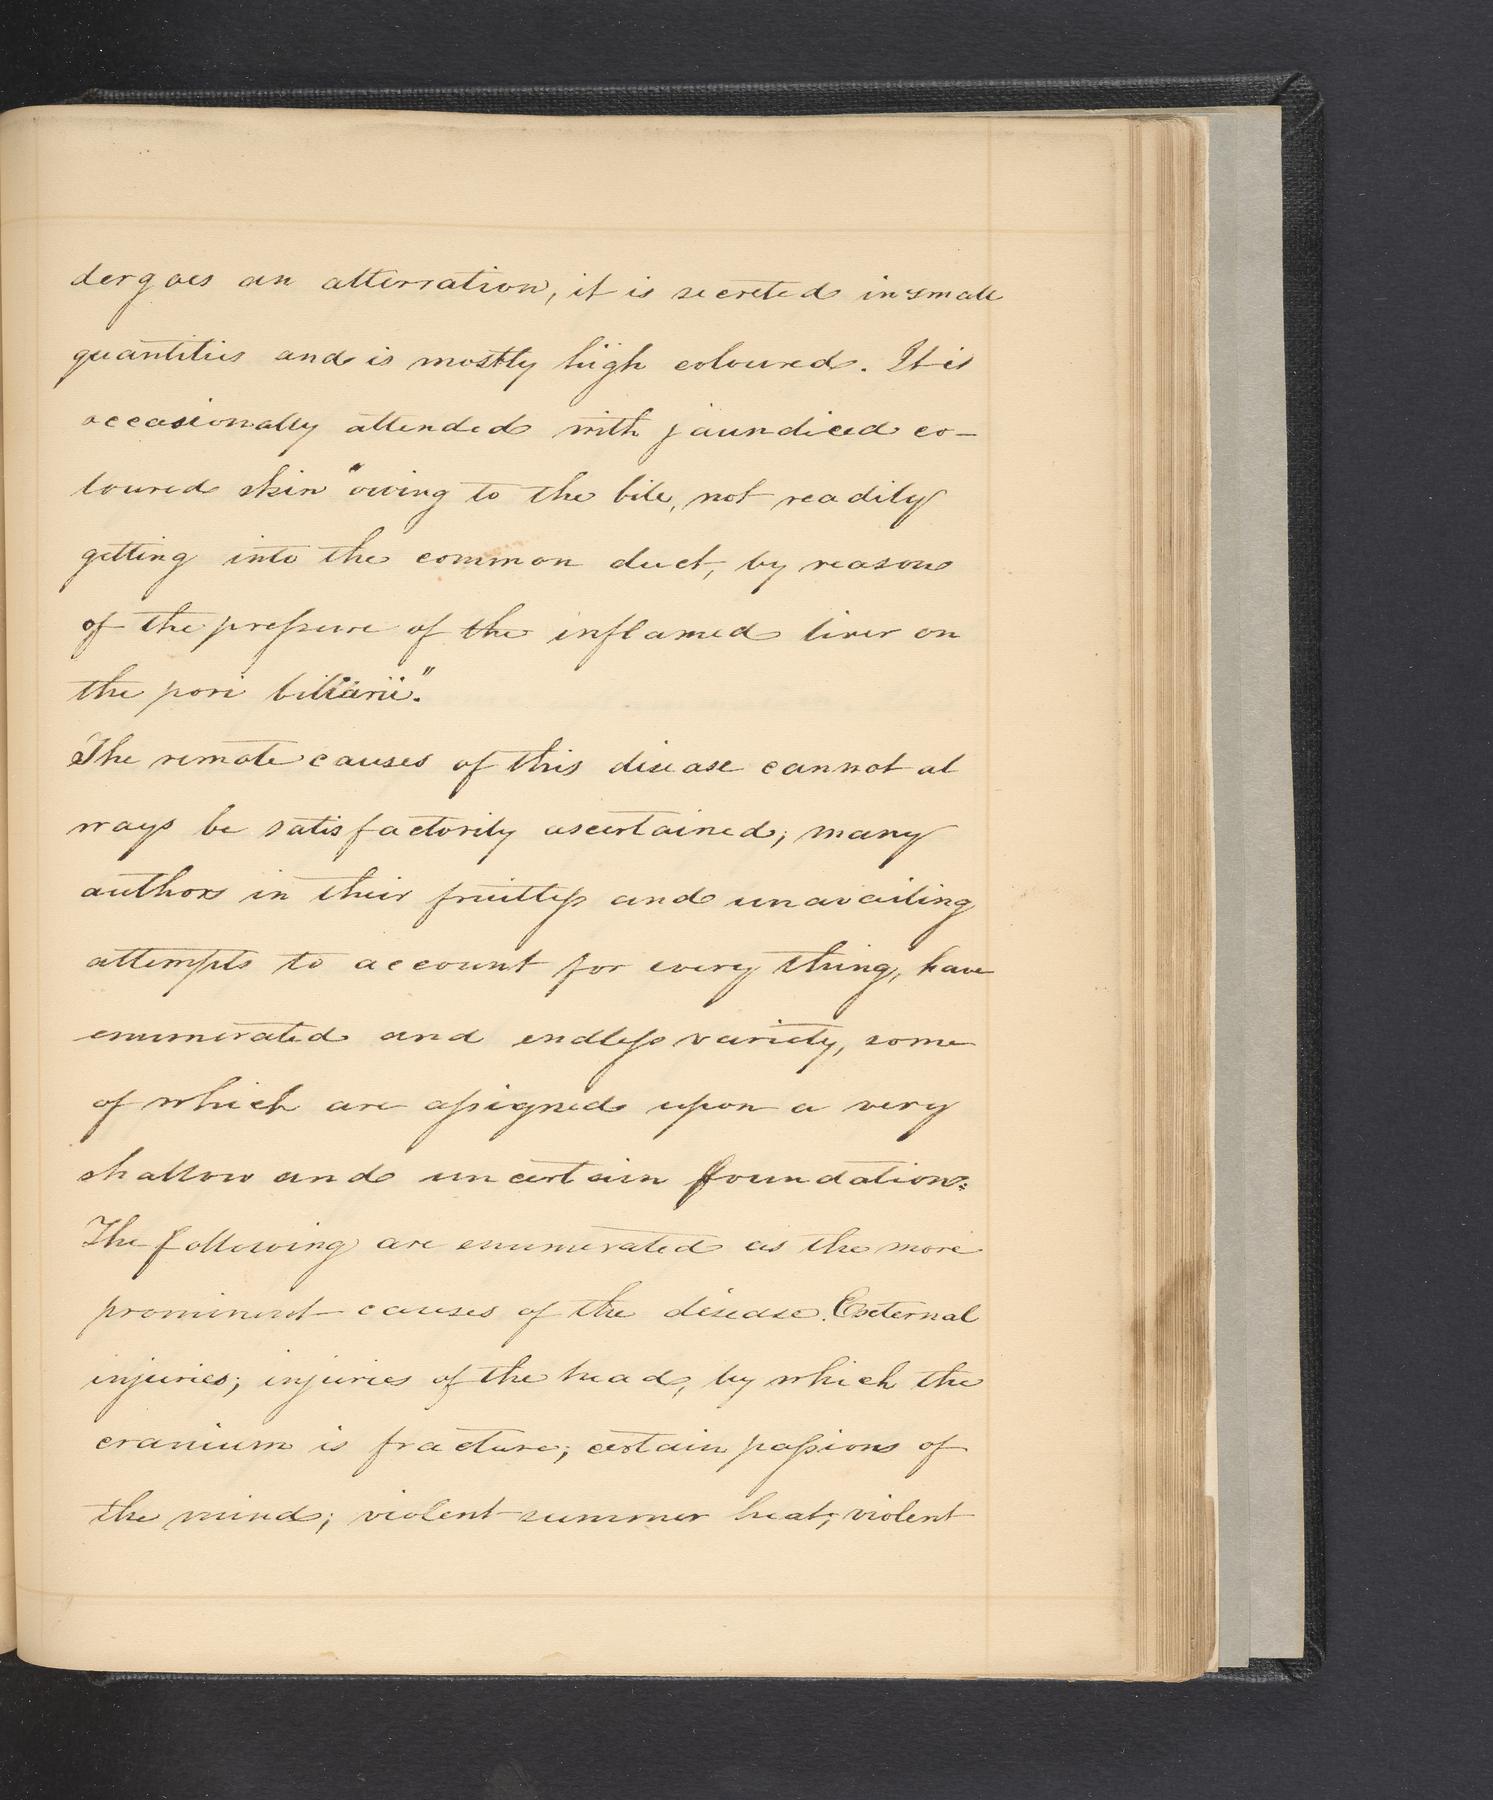 dergoes an alterration, it is secreted in small
quantities and is mostly high coloured. It is
occasionally attended with jaundiced co-
loured skin "owing to the bile, not readily
getting into the common duct, by reason
of the preſsure of the inflamed liver on
the pori biliarii".
The remote causes of this disease cannot al
ways be satisfactorily ascertained; many
authors in their fruitleſs and unavailing
attempts to account for every thing, have
enumerated and endleſs variety, some
of which are aſsigned upon a very
shallow and uncertain foundation:
The following are enumerated as the more
prominent causes of the disease. External
injuries; injuries of the head, by which the
cranium is fracture; certain paſsions of
the mind; violent summer heat; violent